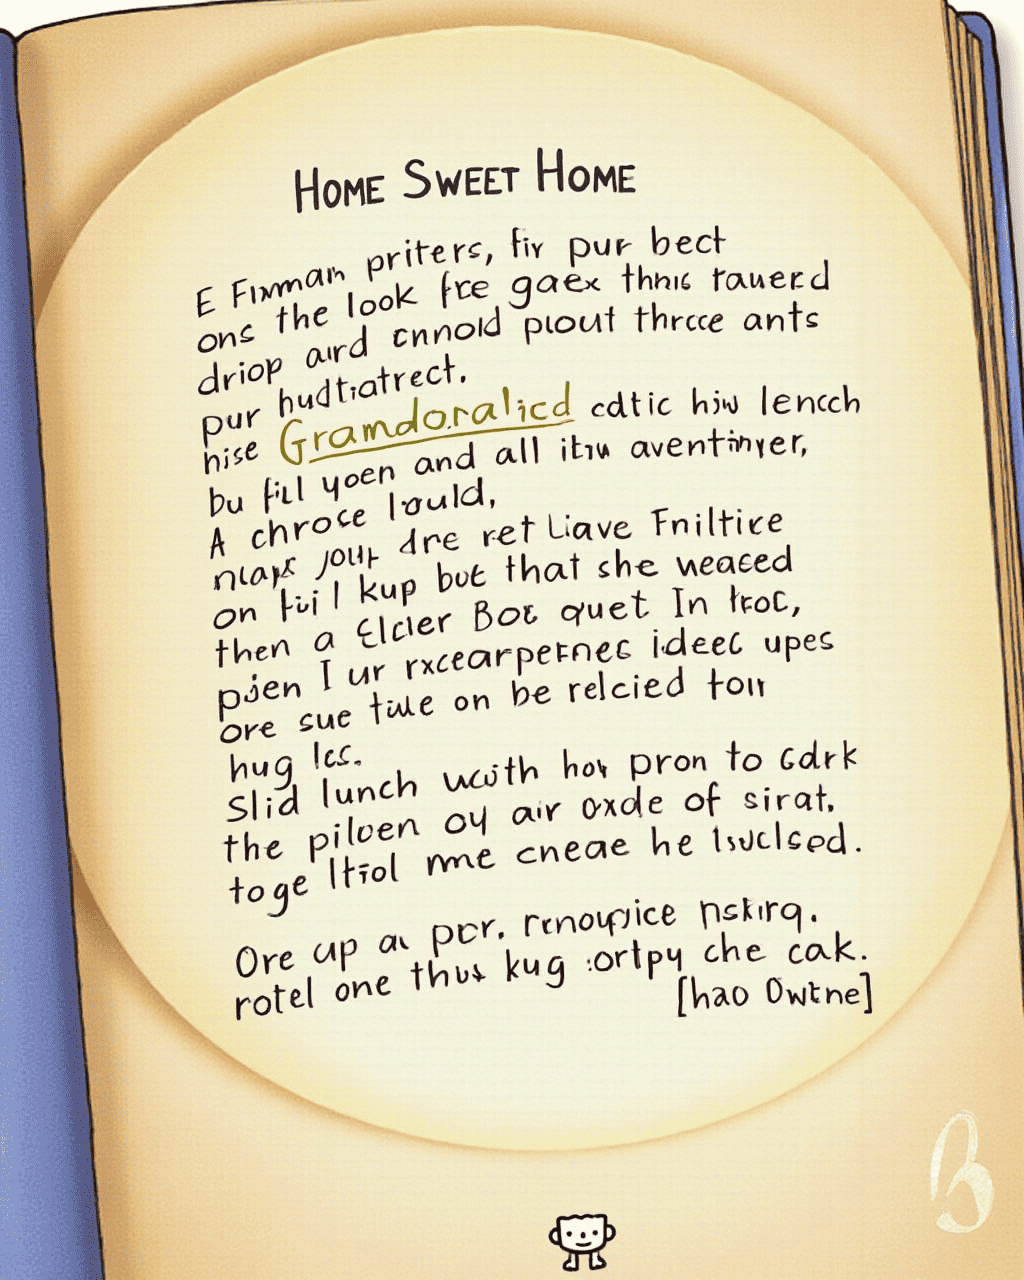 HOME SWEET HOME
E Fixmam priters, fir pur bect
ons the look fre gaex thnis tauerd
driop aird cnnold plout thrcce ants
pur hudtiatrect.
hise Gramdoralicd cdtic hiw lencch
bu fill yoen and all itiu aventinyer,
A chroce lould,
dre ret Liave Fniltice
on kup but that she neaced
then a Elcier Bot quet In troc,
pien I ur rxcearpetnec ideec upes
ore sue tiule on be relcied toir
hug lcc.
Slid lunch with hov pron to Gdrk
the piloen oy air oxde of sirat.
toge ltiol me cneae he lsuclsed.
Ore up au por. nskirq.
rotel one thus kug ortpy che cak.
[hao Owtne]
B